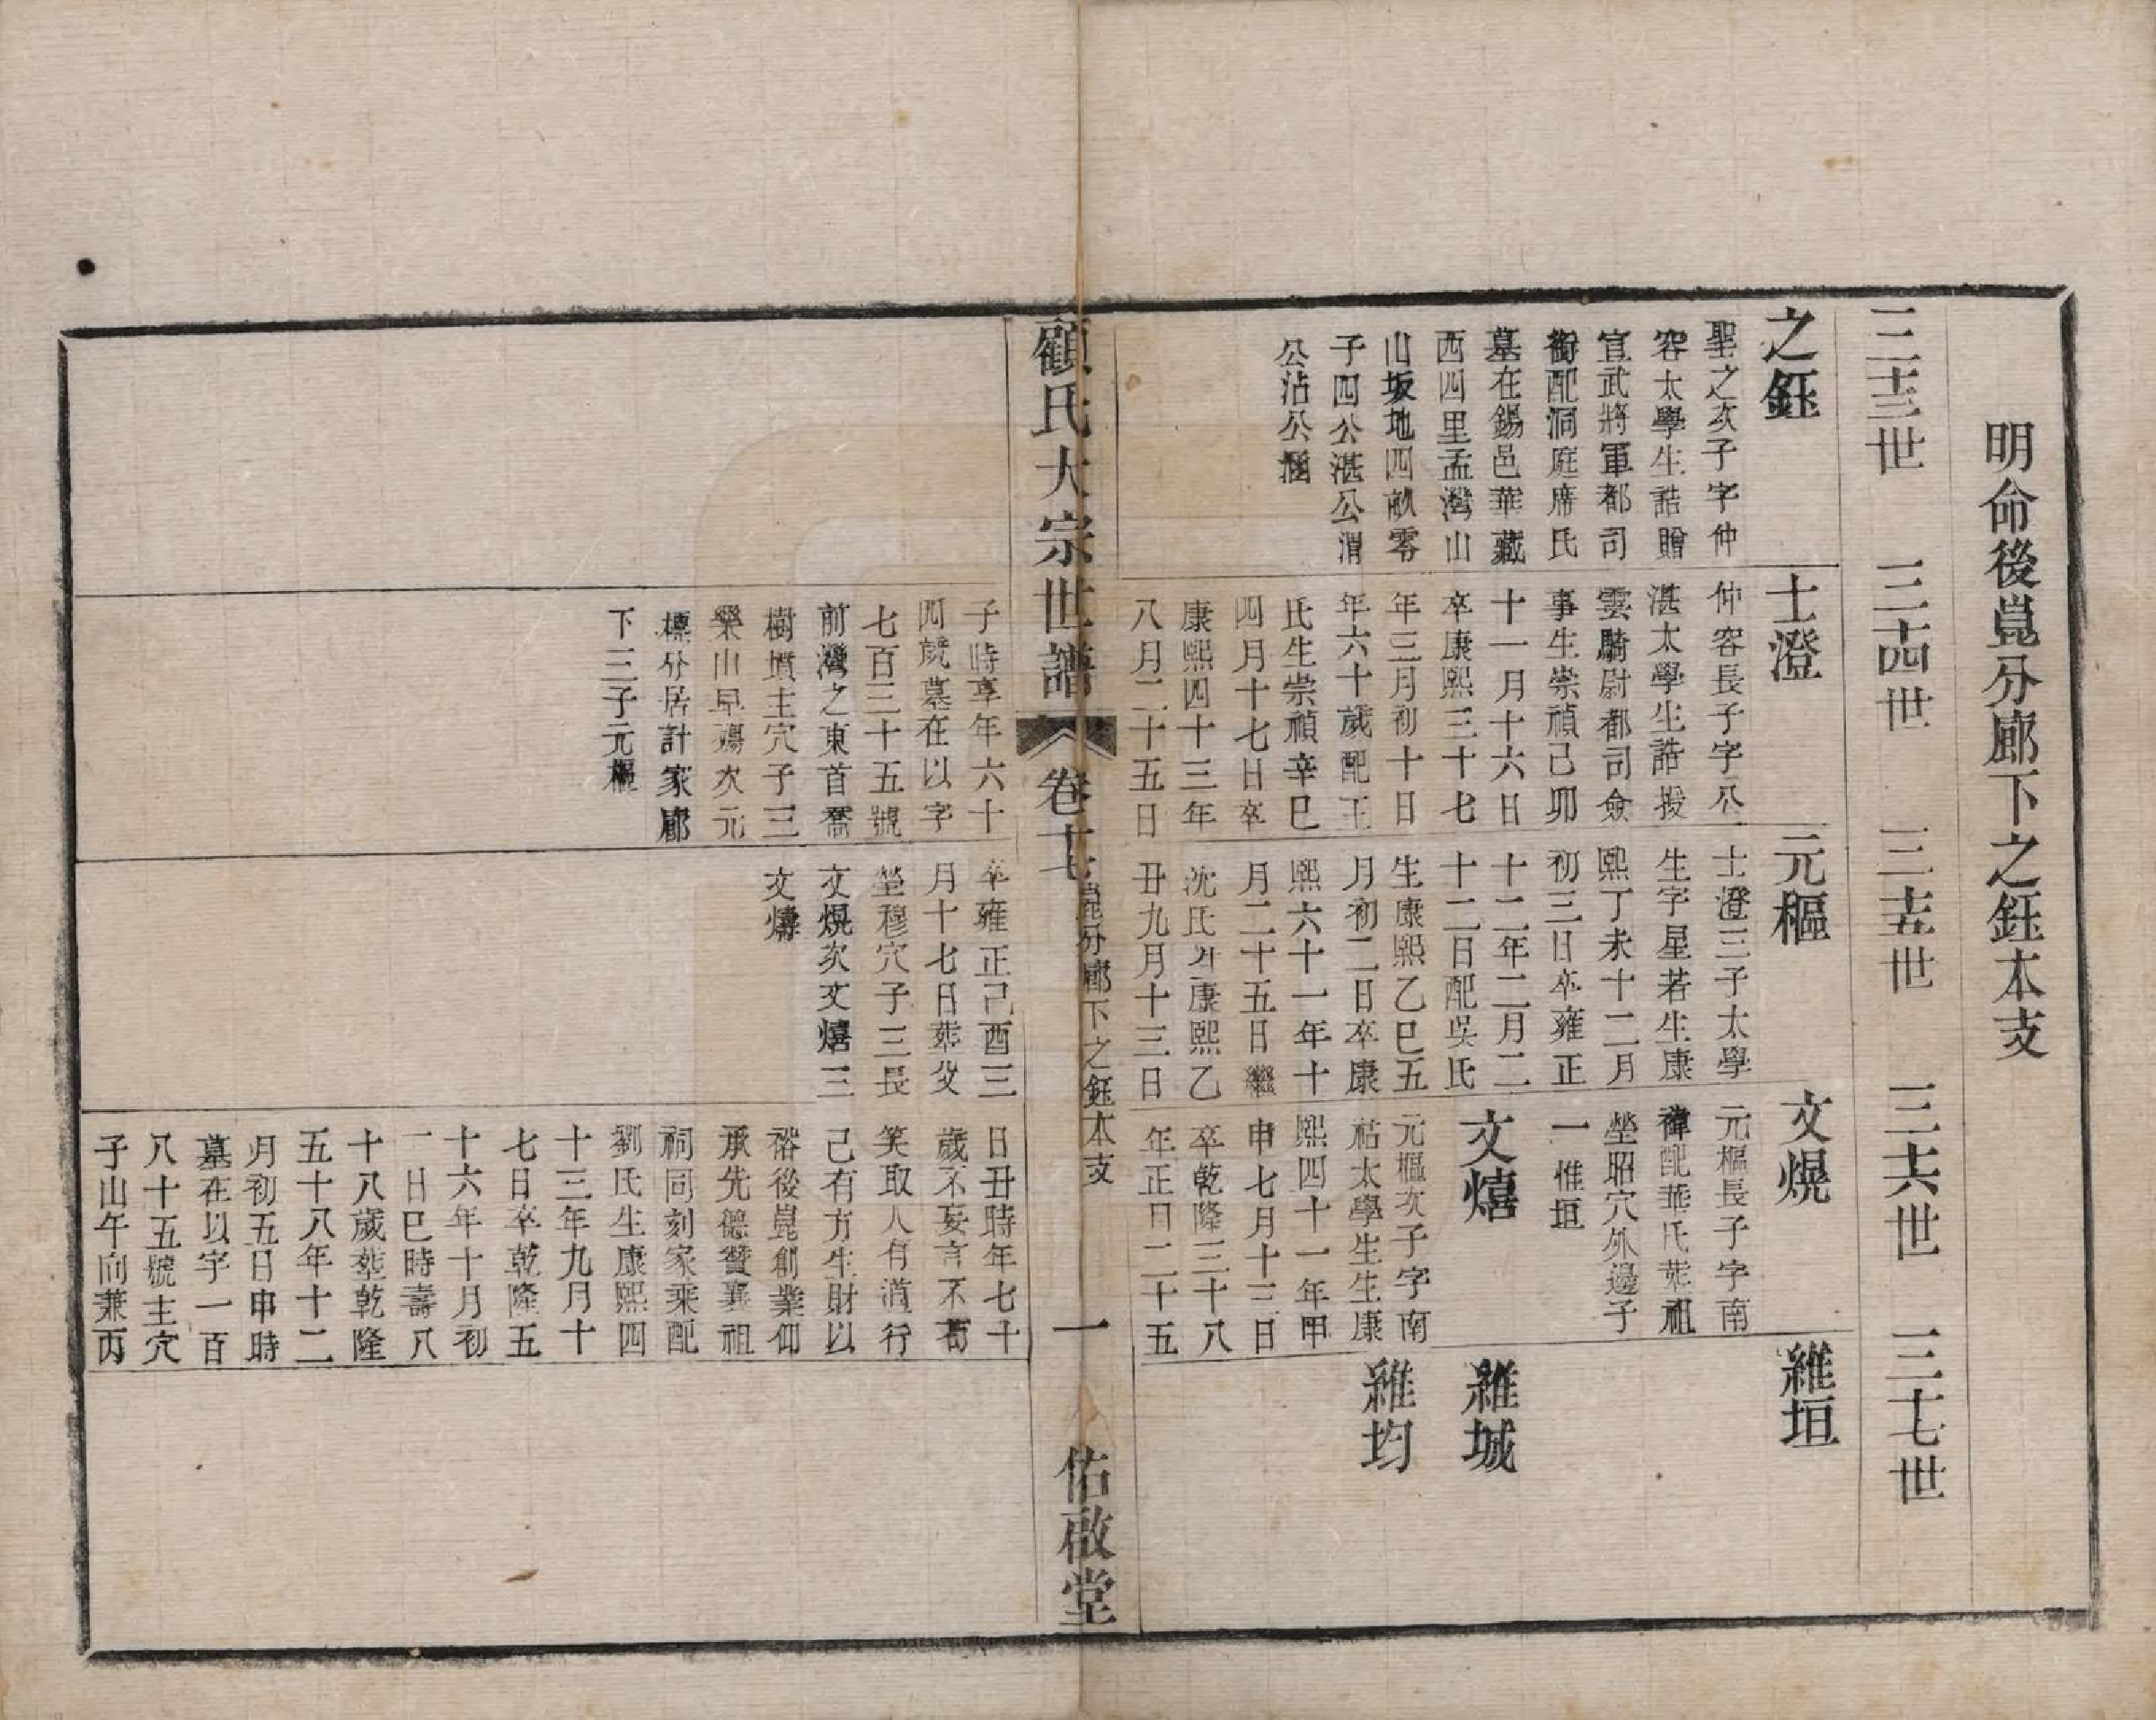 明命後崑分廊下之鈺本支
三十三世
三十四世
三十五世
三十六世
三十七世
之鈺
聖之次子字仲
容太學生誥贈
宣武將軍都司
銜配洞庭席氏
墓在錫邑華藏
西四里孟灣山
山坂地四畝零
子四公湛公渭
公沾公涵
士澄
仲容長子字公
湛太學生誥授
雲騎尉都司僉
事生崇禎己卯
十一月十六日
卒康熙三十七
年三月初十日
年六十歲配王
氏生崇禎辛巳
四月十七日卒
康熙四十三年
八月二十五日
子時享年六十
四歲墓在以字
七百三十五號
前灣之東首喬
樹墳主穴子三
樂山早殤次元
標分居計家廊
下三子元樞
元樞
士澄三子太學
生字星若生康
熙丁未十二月
初三日卒雍正
十二年二月二
十二日配吳氏
生康熙乙巳五
月初二日卒康
熙六十一年十
月二十五日繼
沈氏生康熙乙
丑九月十三日
卒雍正己酉三
月十七日葬父
塋穆穴子三長
文熀次文熺三
文燽
文熀
元樞長子字南
禕配華氏葬祖
塋昭穴外邊子
一 惟垣
文熺
元樞次子字南
祜太學生生康
熙四十一年甲
申七月十三日
卒乾隆三十八
年正月二十五
日丑時年七十
歲不妄言不苟
笑取人有道行
己有方生財以
裕後崑創業仰
承先德贊襄祖
祠同刻家乘配
劉氏生康熙四
十三年九月十
七日卒乾隆五
十六年十月初
一日巳時壽八
十八歲葬乾隆
五十八年十二
月初五日申時
墓在以字一百
八十五號主穴
子山午向兼丙
維垣
維城
維均
顧氏大宗世譜
卷十七
崑分廊下之鈺本支
一
佑啟堂